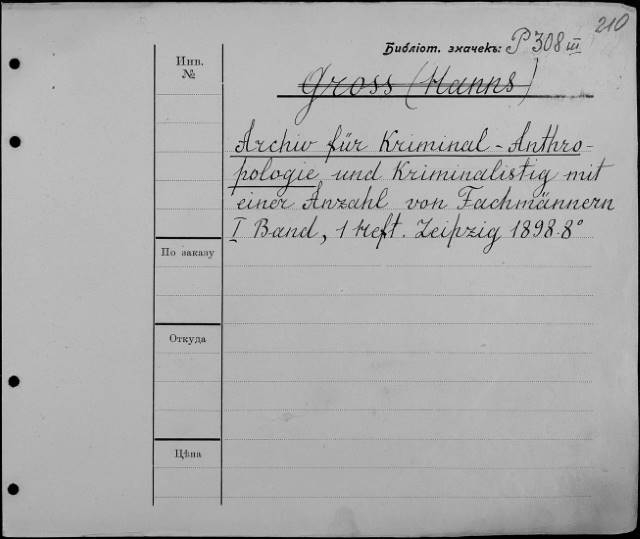 210
Библіот. значекъ: P 308 III
Инв.
№
Gross (Hanns)
Archiv für Kriminal-Anthro-
pologie und Kriminalistig mit
einer Anzahl von Fachmännern
I Band, 1 Heft. Leipzig 1898. 8°
По заказу
Откуда
Цѣна